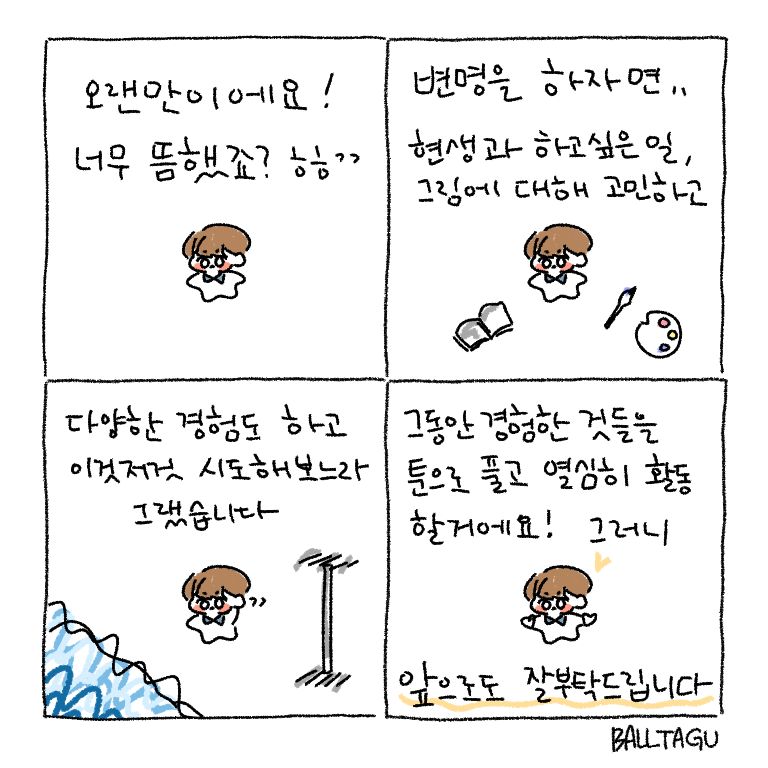 오랜만이에요!
너무 뜸했죠? 하하^^
변명을 하자면..
현생과 하고싶은 일,
그림에 대해 고민하고
다양한 경험도 하고
이것저것 시도해보느라
그랬습니다
그동안 경험한 것들을
툰으로 풀고 열심히 활동
할거에요! 그러니
앞으로도 잘부탁드립니다
BALLTAGU